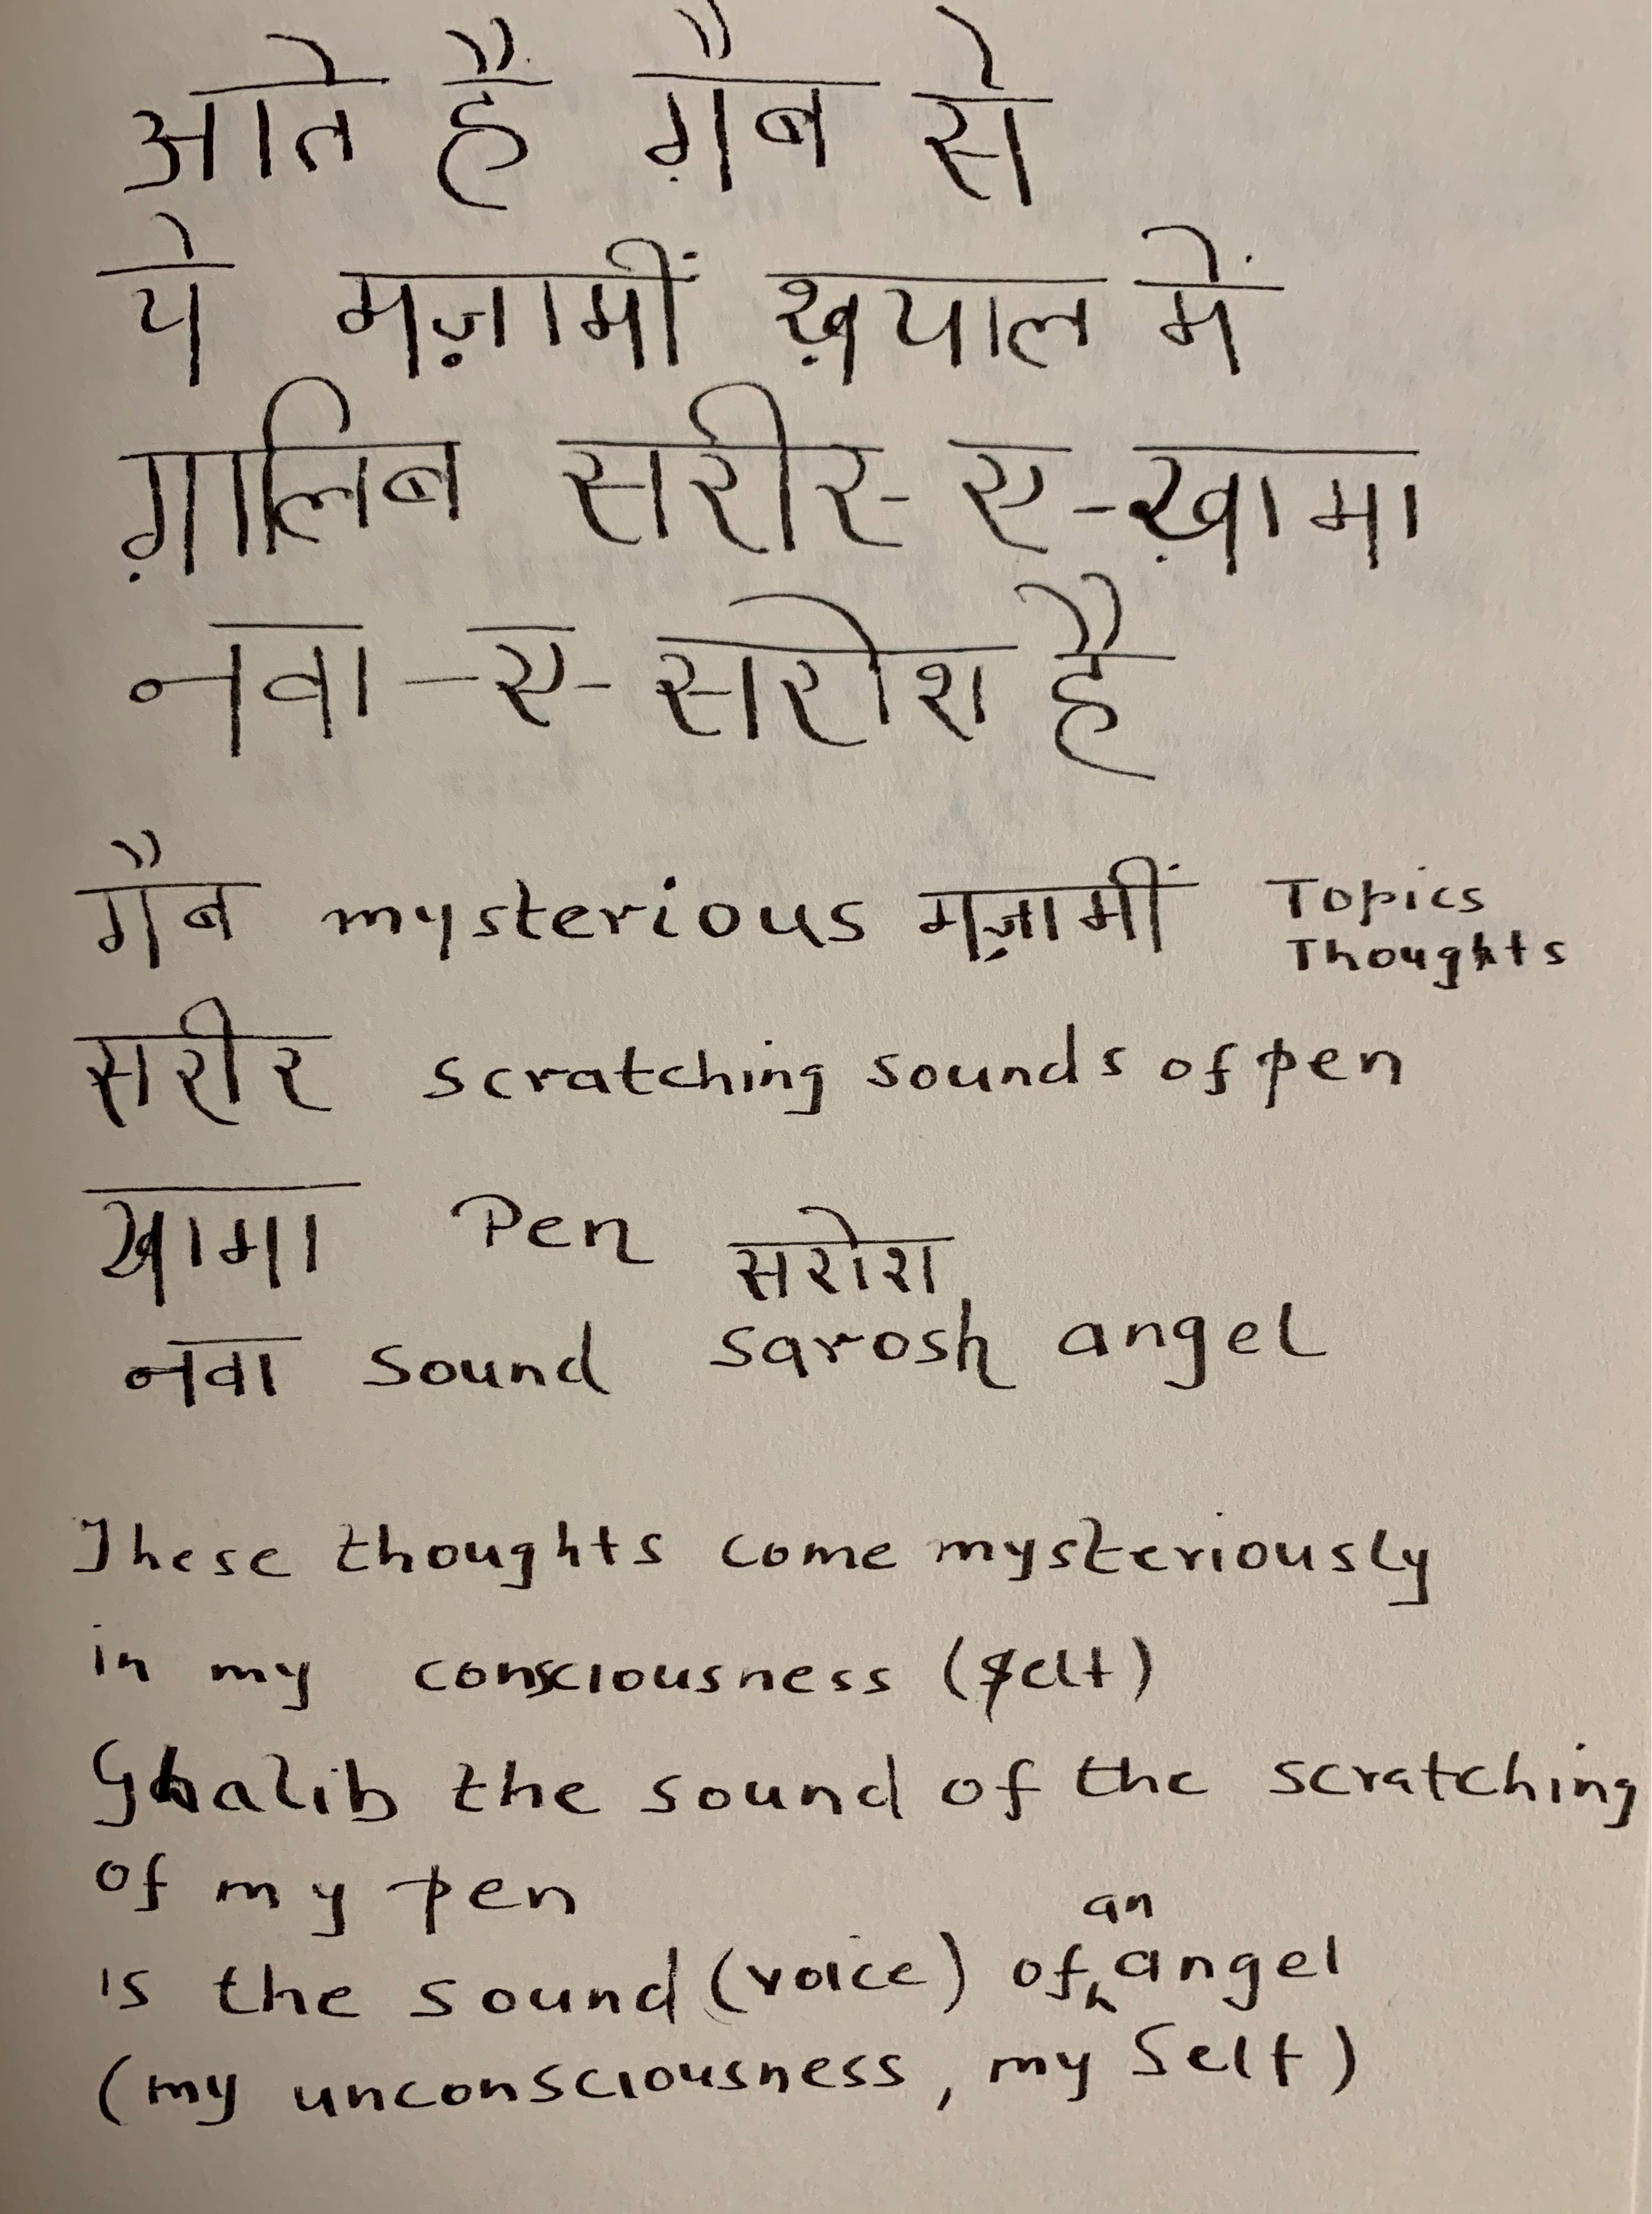 आते हैं ग़ैब से
ये मज़ामीं ख़याल में
ग़ालिब सरीर-ए-ख़ामा
नवा-ए-सरोश है
गैब mysterious मज़ामीं Topics
Thoughts
सरीर scratching sounds of pen
खामा Pen सरोश
नवा sound sarosh angel
These thoughts come mysteriously
in my consciousness (self)
Ghalib the sound of the scratching
of my pen
is the sound (voice) of an angel
(my unconsciousness, my Self)